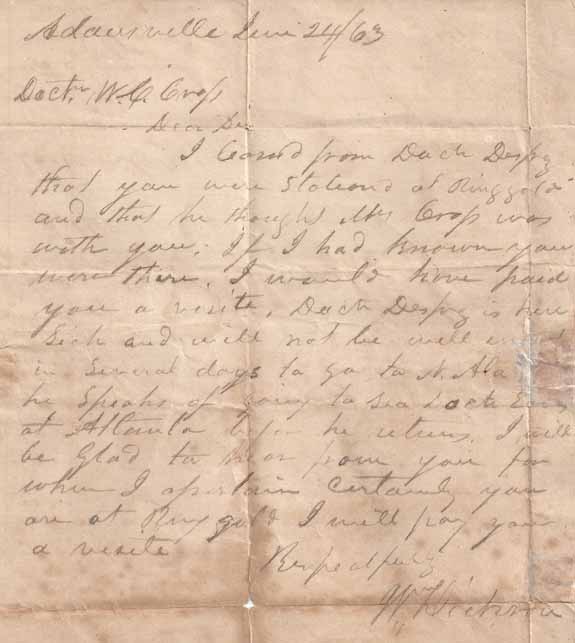 Adairsville June 24/63
Doctr. W. C. Cross
Dear Sir
I learnd from Doct Desprz
that you were Stationd at Ringgold
and that he thought Mrs Cross was
with you. If I had known you
were there, I would have paid
you a visite. Doct Desprz is here
Sick and will not be well
in several days to go to N. Ala
he speaks of going to see Doct
at Atlanta before he returns. I will
be Glad to hear from you for
when I assertain certainly you
are at Ringgold I will pay you
a visite
Respectfully
W Hickman